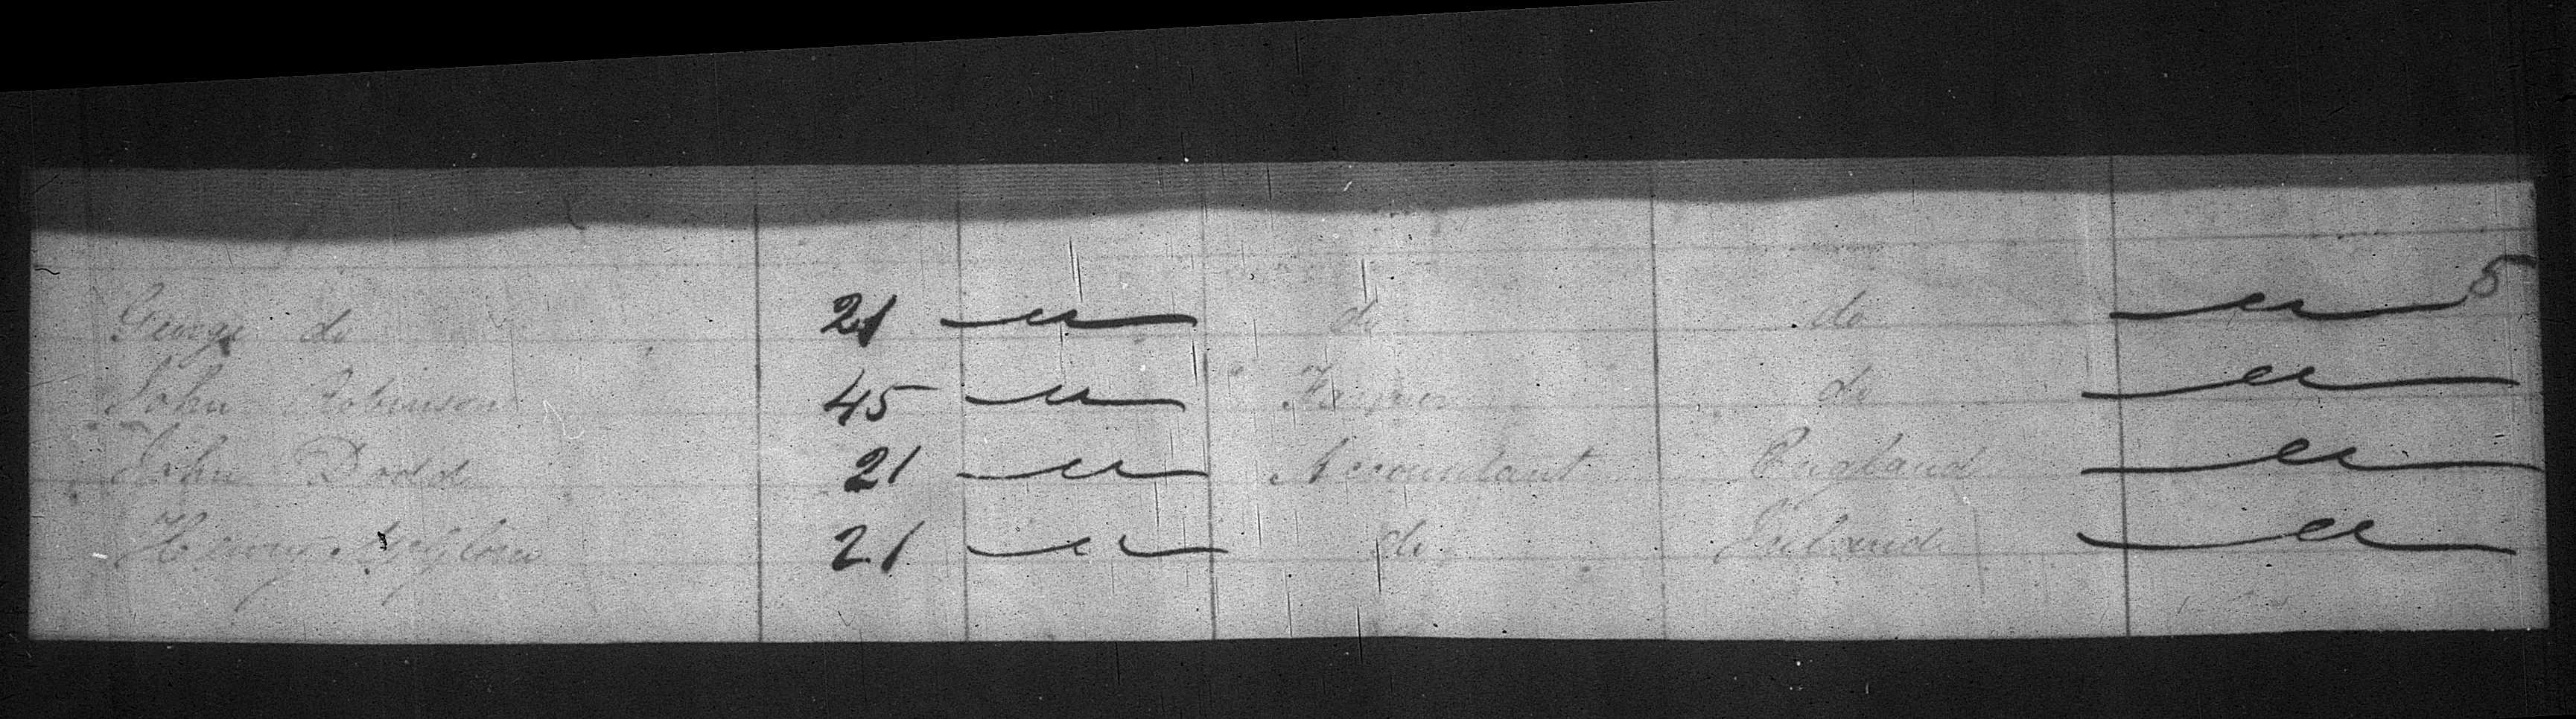 George do 21 " do do " 5
John Robinson 45 " Farmer do "
John Dodd 21 " Accountant England "
Henry 21 " do Ireland "